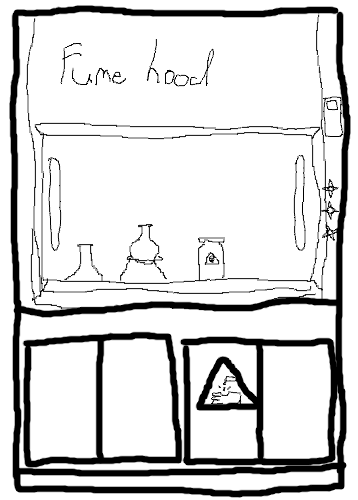 Fume hood